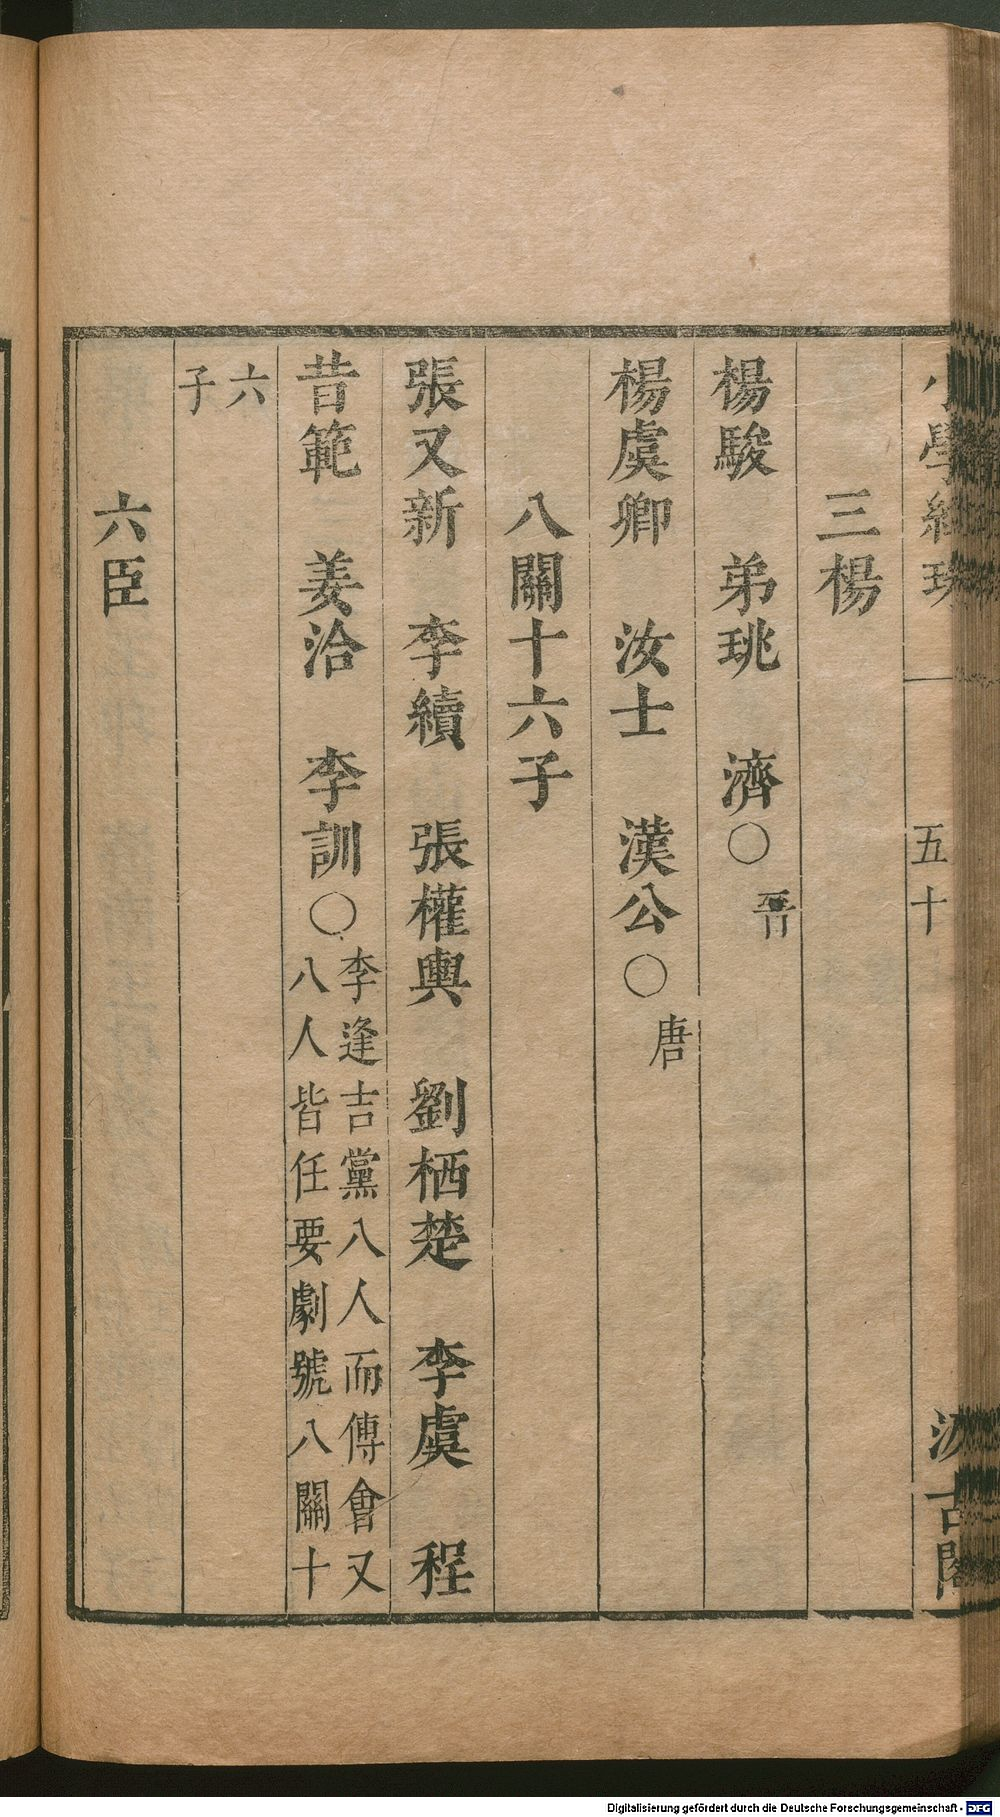 小學紺珠 五十 汲古閣
三楊
楊駿 弟珧 濟○晉
楊虞卿 汝士 漢公○唐
八關十六子
張又新 李續 張權輿 劉栖楚 李虞 程
昔範 姜洽 李訓○李逢吉黨八人而傅會又
八人皆任要劇號八關十
六
子
六臣
Digitalisierung gefördert durch die Deutsche Forschungsgemeinschaft - DFG